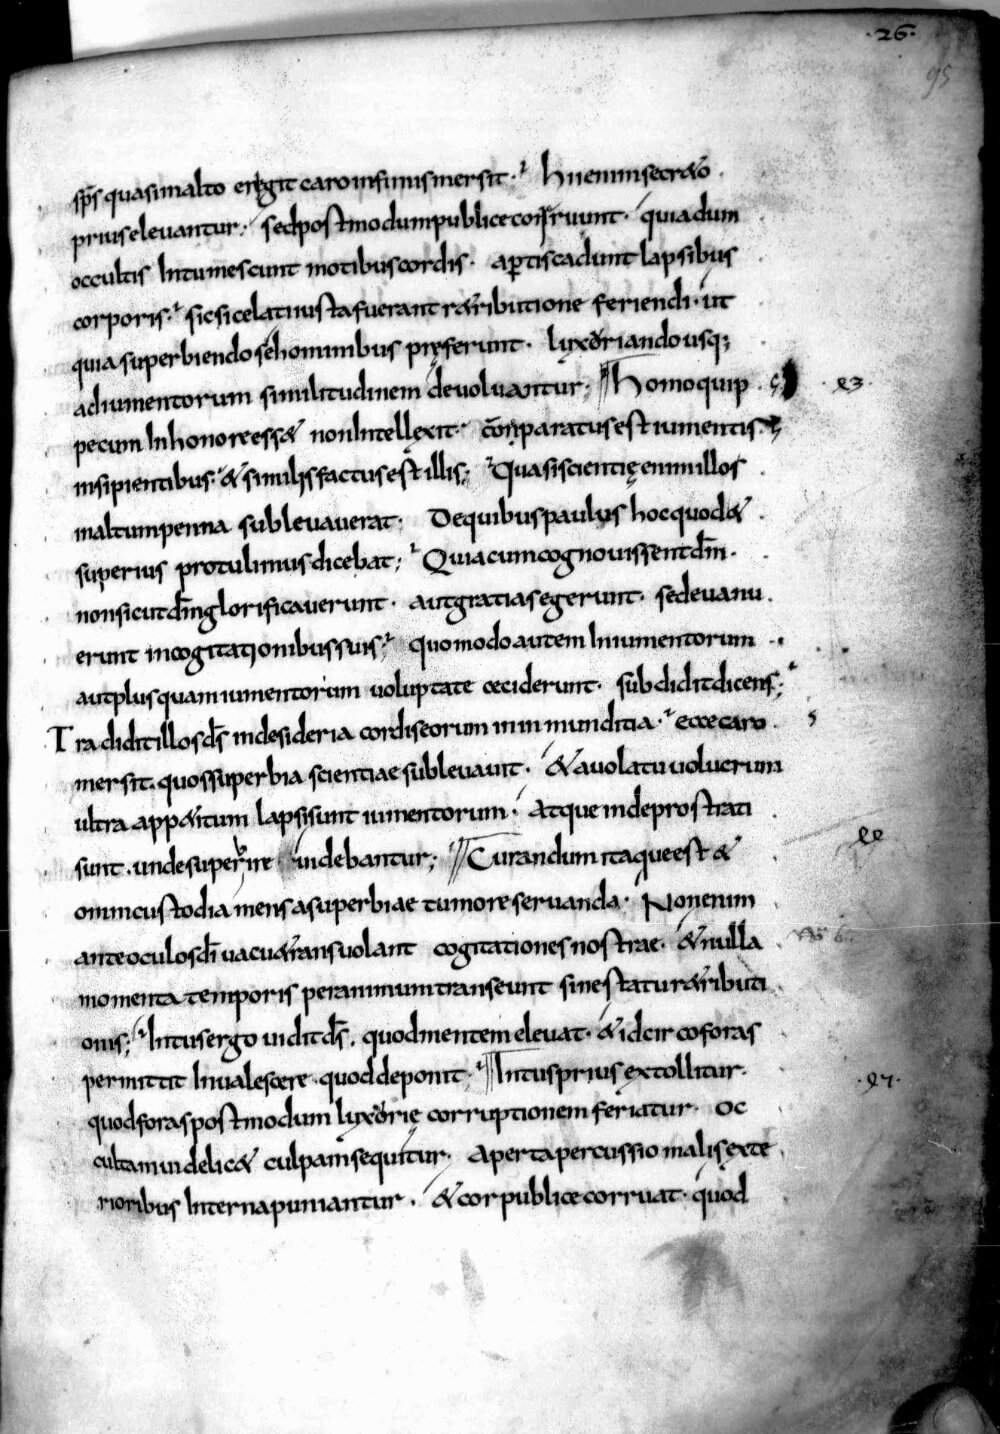 ·26·
95
sp̄s quasi in alto erigit caro in infimis mersit · hii enim secr&o
prius elevantur; sed postmodum publice corruunt · quia dum
occultis intumescunt motibus cordis · apertis cadunt lapsibus
corporis · sic sic elati iusta fuerant r&ributione feriendi · ut
quia superbiendo se hominibus pręferunt · luxoriando usq;
ad iumentorum similitudinem devolvantur; homo quip
pe cum in honore ess& non intellexit · comparatus est iumentis
insipientibus · & similis factus est illis; Quasi scientię enim illos
in altum penna sublevaverat · De quibus paulus hoc quod &
superius protulimus dicebat; Quia cum cognovissent dm̄ ·
non sicut dm̄ glorificaverunt · aut gratias egerunt · sed evanu
erunt in cogitationibus suis · quomodo autem in iumentorum
aut plus quam iumentorum voluptate ceciderunt · subdidit dicens;
Tradidit illos ds̄ in desideria cordis eorum in inmunditia · ecce caro
mersit · quos superbia scientiae sublevavit · & a volatu volucrum
ultra app&itum lapsi sunt iumentorum · atque inde prostrati
sunt · unde super ire videbantur; Curandum itaque est &
omni custodia mens a superbiae tumore servanda · Non enim
ante oculos dī vacu& transvolant cogitationes nostrae · & nulla
momenta temporis per animum transeunt sine statu r&ributi
onis; Intus ergo vidit ds̄ · quod mentem elevat · & idcirco foras
permittit invalescere · quod deponit · Intus prius extollitur ·
quod foras postmodum luxorię corruptione feriatur · oc
cultam videlic& culpam sequitur · aperta percussio ut malis exte
rioribus interna puniantur · & cor publice corruat · quod